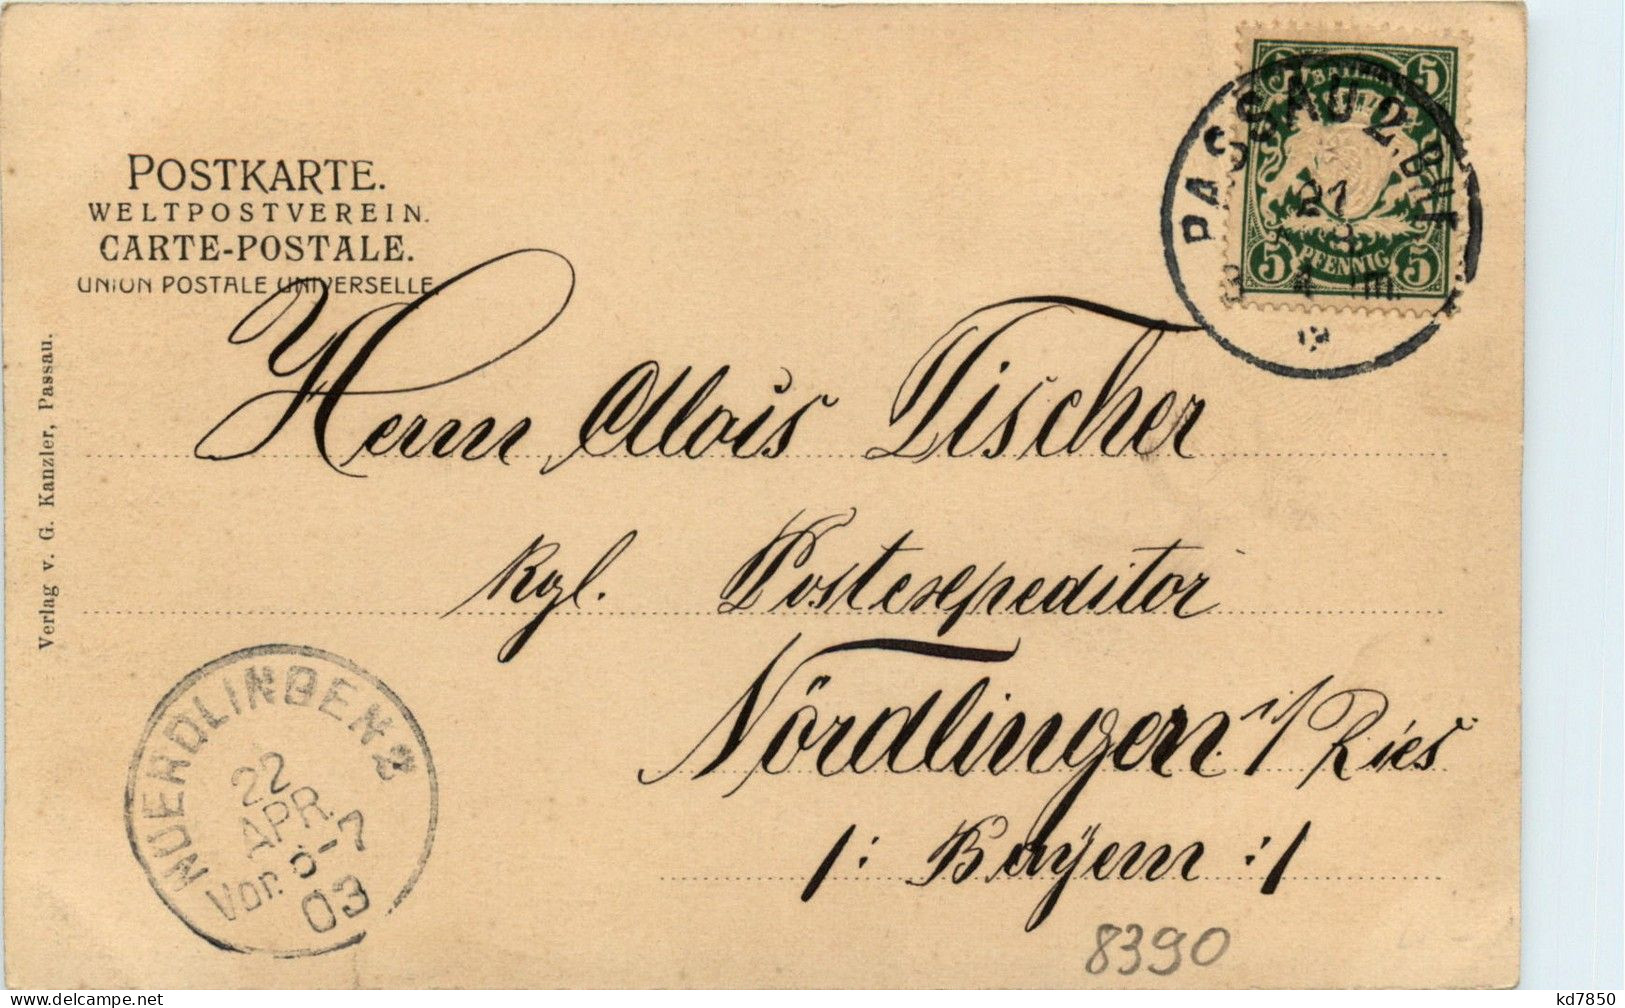 POSTKARTE.
WELTPOSTVEREIN.
CARTE-POSTALE.
UNION POSTALE UNIVERSELLE.
Verlag v. G. Kanzler, Passau.
BAYERN
5 5
PFENNIG
5 5
PASSAU 2, Bhf
21
Herrn Alois Fischer
kgl. Postexpeditor
Nördlingen i/ Ries
/: Bayern :/
NUERDLINGEN 2
22
APR.
Vor. 6-7
03
8390
kd7850